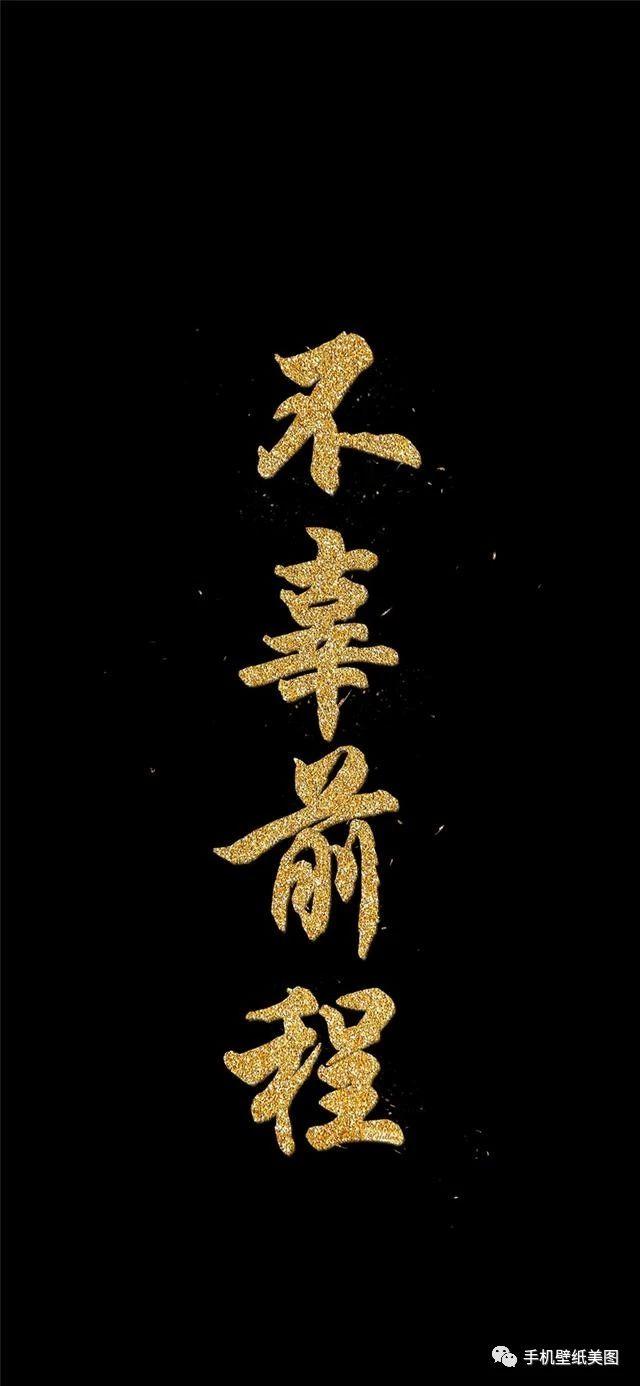 不辜前程
手机壁纸美图